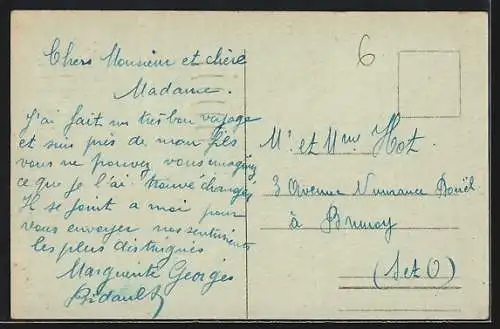 Chers Monsieur et chère
Madame.
J'ai fait un très bon voyage
et suis près de mon fils
vous ne pouvez vous imaginez
ce que je l'ai trouvé changé
Il se joint a moi pour
vous envoyer nos sentiments
les plus distingués
Marguerite Georges
Bidault
6
Mr et Mme Hot.
3 Avenue
à Brunoy
(S et O)